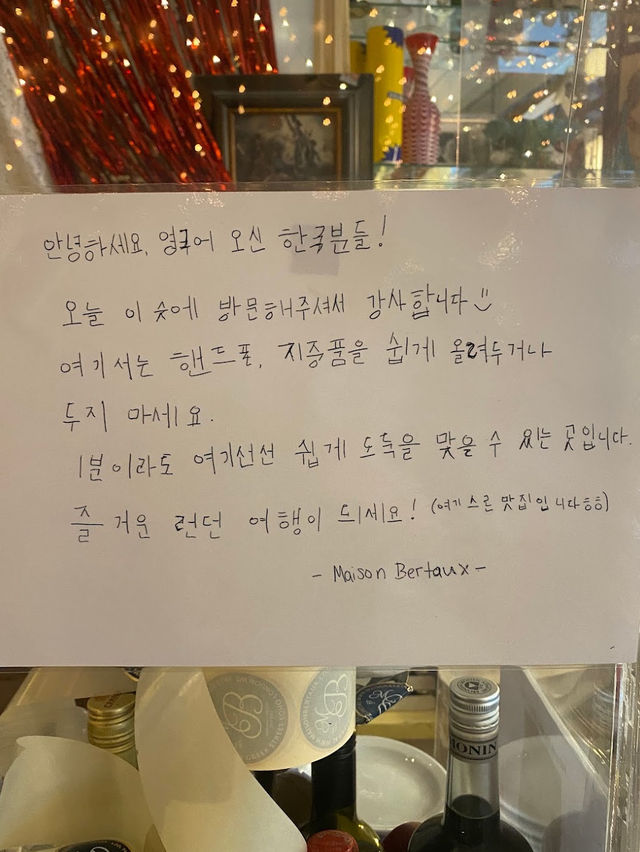 안녕하세요, 영국에 오신 한국분들!
오늘 이 숏에 방문해주셔서 감사합니다
여기서는 핸드포, 지중품을 쉽게 올려두거나
두지 마세요.
1분이라도 여기선선 쉽게 도둑을 맞을 수 있는 곳입니다.
즐거운 런던 여행이 되세요! (여기 스콘 맛집입니다ㅎㅎ)
- Maison Bertaux -
MONIN